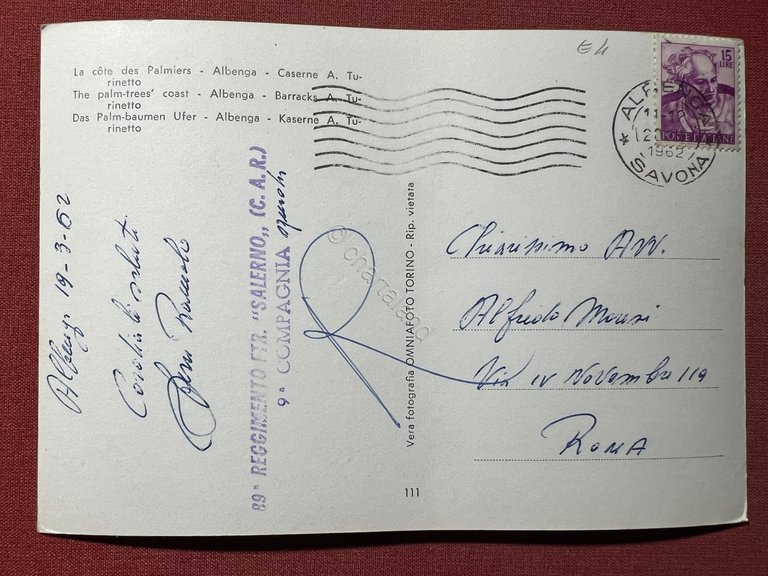 La côte des Palmiers - Albenga - Caserne A. Tu-
rinetto
The palm-trees' coast - Albenga - Barracks A. Tu-
rinetto
Das Palm-baumen Ufer - Albenga - Kaserne A. Tu-
rinetto
E4
15
LIRE
POSTE ITALIANE
1962
SAVONA
Albenga 19-3-62
Cordiali saluti
89° REGGIMENTO FTR. "SALERNO„ (C.A.R.)
9ª COMPAGNIA
© chartaland
Vera fotografia OMNIAFOTO TORINO - Rip. vietata
Chiarissimo Avv.
Alfredo
Via IV Novembre 119
ROMA
111